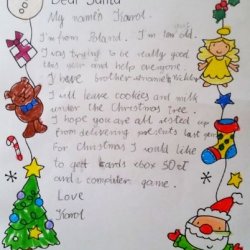 Dear Santa
My name's Karol.
I'm from Poland. I'm 10 old.
I was trying to be really good
this year and help everyone.
I have brother
I will leave cookies and milk
under the Christmas tree.
I hope you are all rested up
from delivering presents last year
For Christmas I would like
to get cards xbox 50zł
and a computer game.
Love
Karol